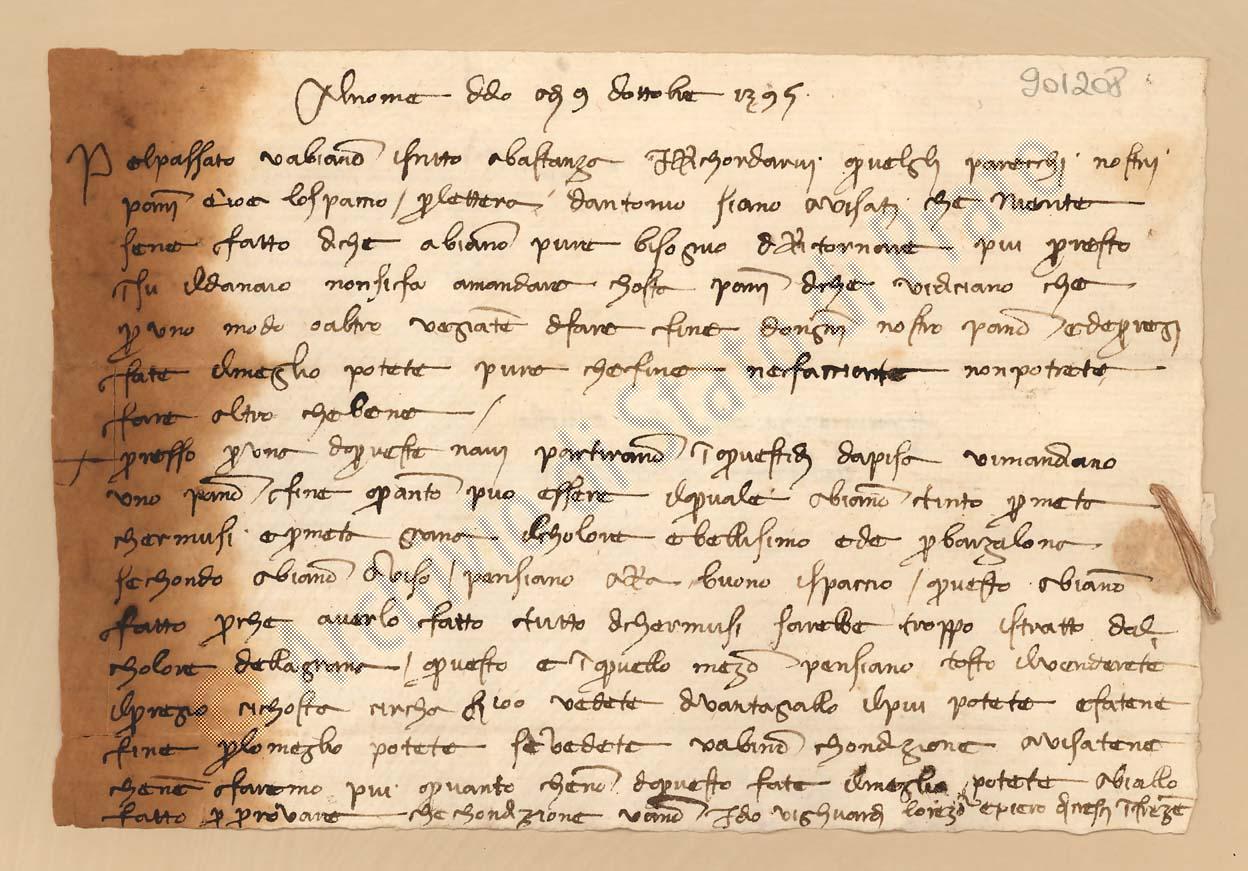 901208
Al nome ddio adì 9 dottobre 1395
Pel passato v abiano ischritto abastanza Richordarvi quelgli parecchi nostri
panni e cioe lo spaccio / per lettera dantonio siano avisati che niente
se ne fatto di che abiano pure bisogno di Ritornare piu presto
in su il danaio non si fa a mandare chosta panni di che vi diciano che
per uno modo o altro vegiate di fare fine dongni nostro panno e de pregi
fate il meglio potete pure che fine ne facciate non potrete
fare altro che bene /
presso per una di queste navi partirano in questi dì da pisa vi mandiano
uno panno fine quanto puo essere il quale abiano tinto per meta
chermusi e per meta grana il cholore e bellisimo ed e per barzalona
sechondo abiano aviso / pensiano ara buono ispaccio / questo abiano
fatto perche averlo fatto tutto di chermusi sarebbe troppo istratto dal
cholore della grana / questo e in quello mezo pensiano tosto il venderete
il pregio ci chosta circha 100 vedete davantagiallo il piu potete e fatene
fine per lo meglio potete se vedete v abino chondizione avisatene
che ne faremo piu quanto che no di questo fate il meglio potete abiallo
fatto per provare che chondizione vano Idio vi ghuardi lorenzo e piero di in firenze
Archivio di Stato di Prato